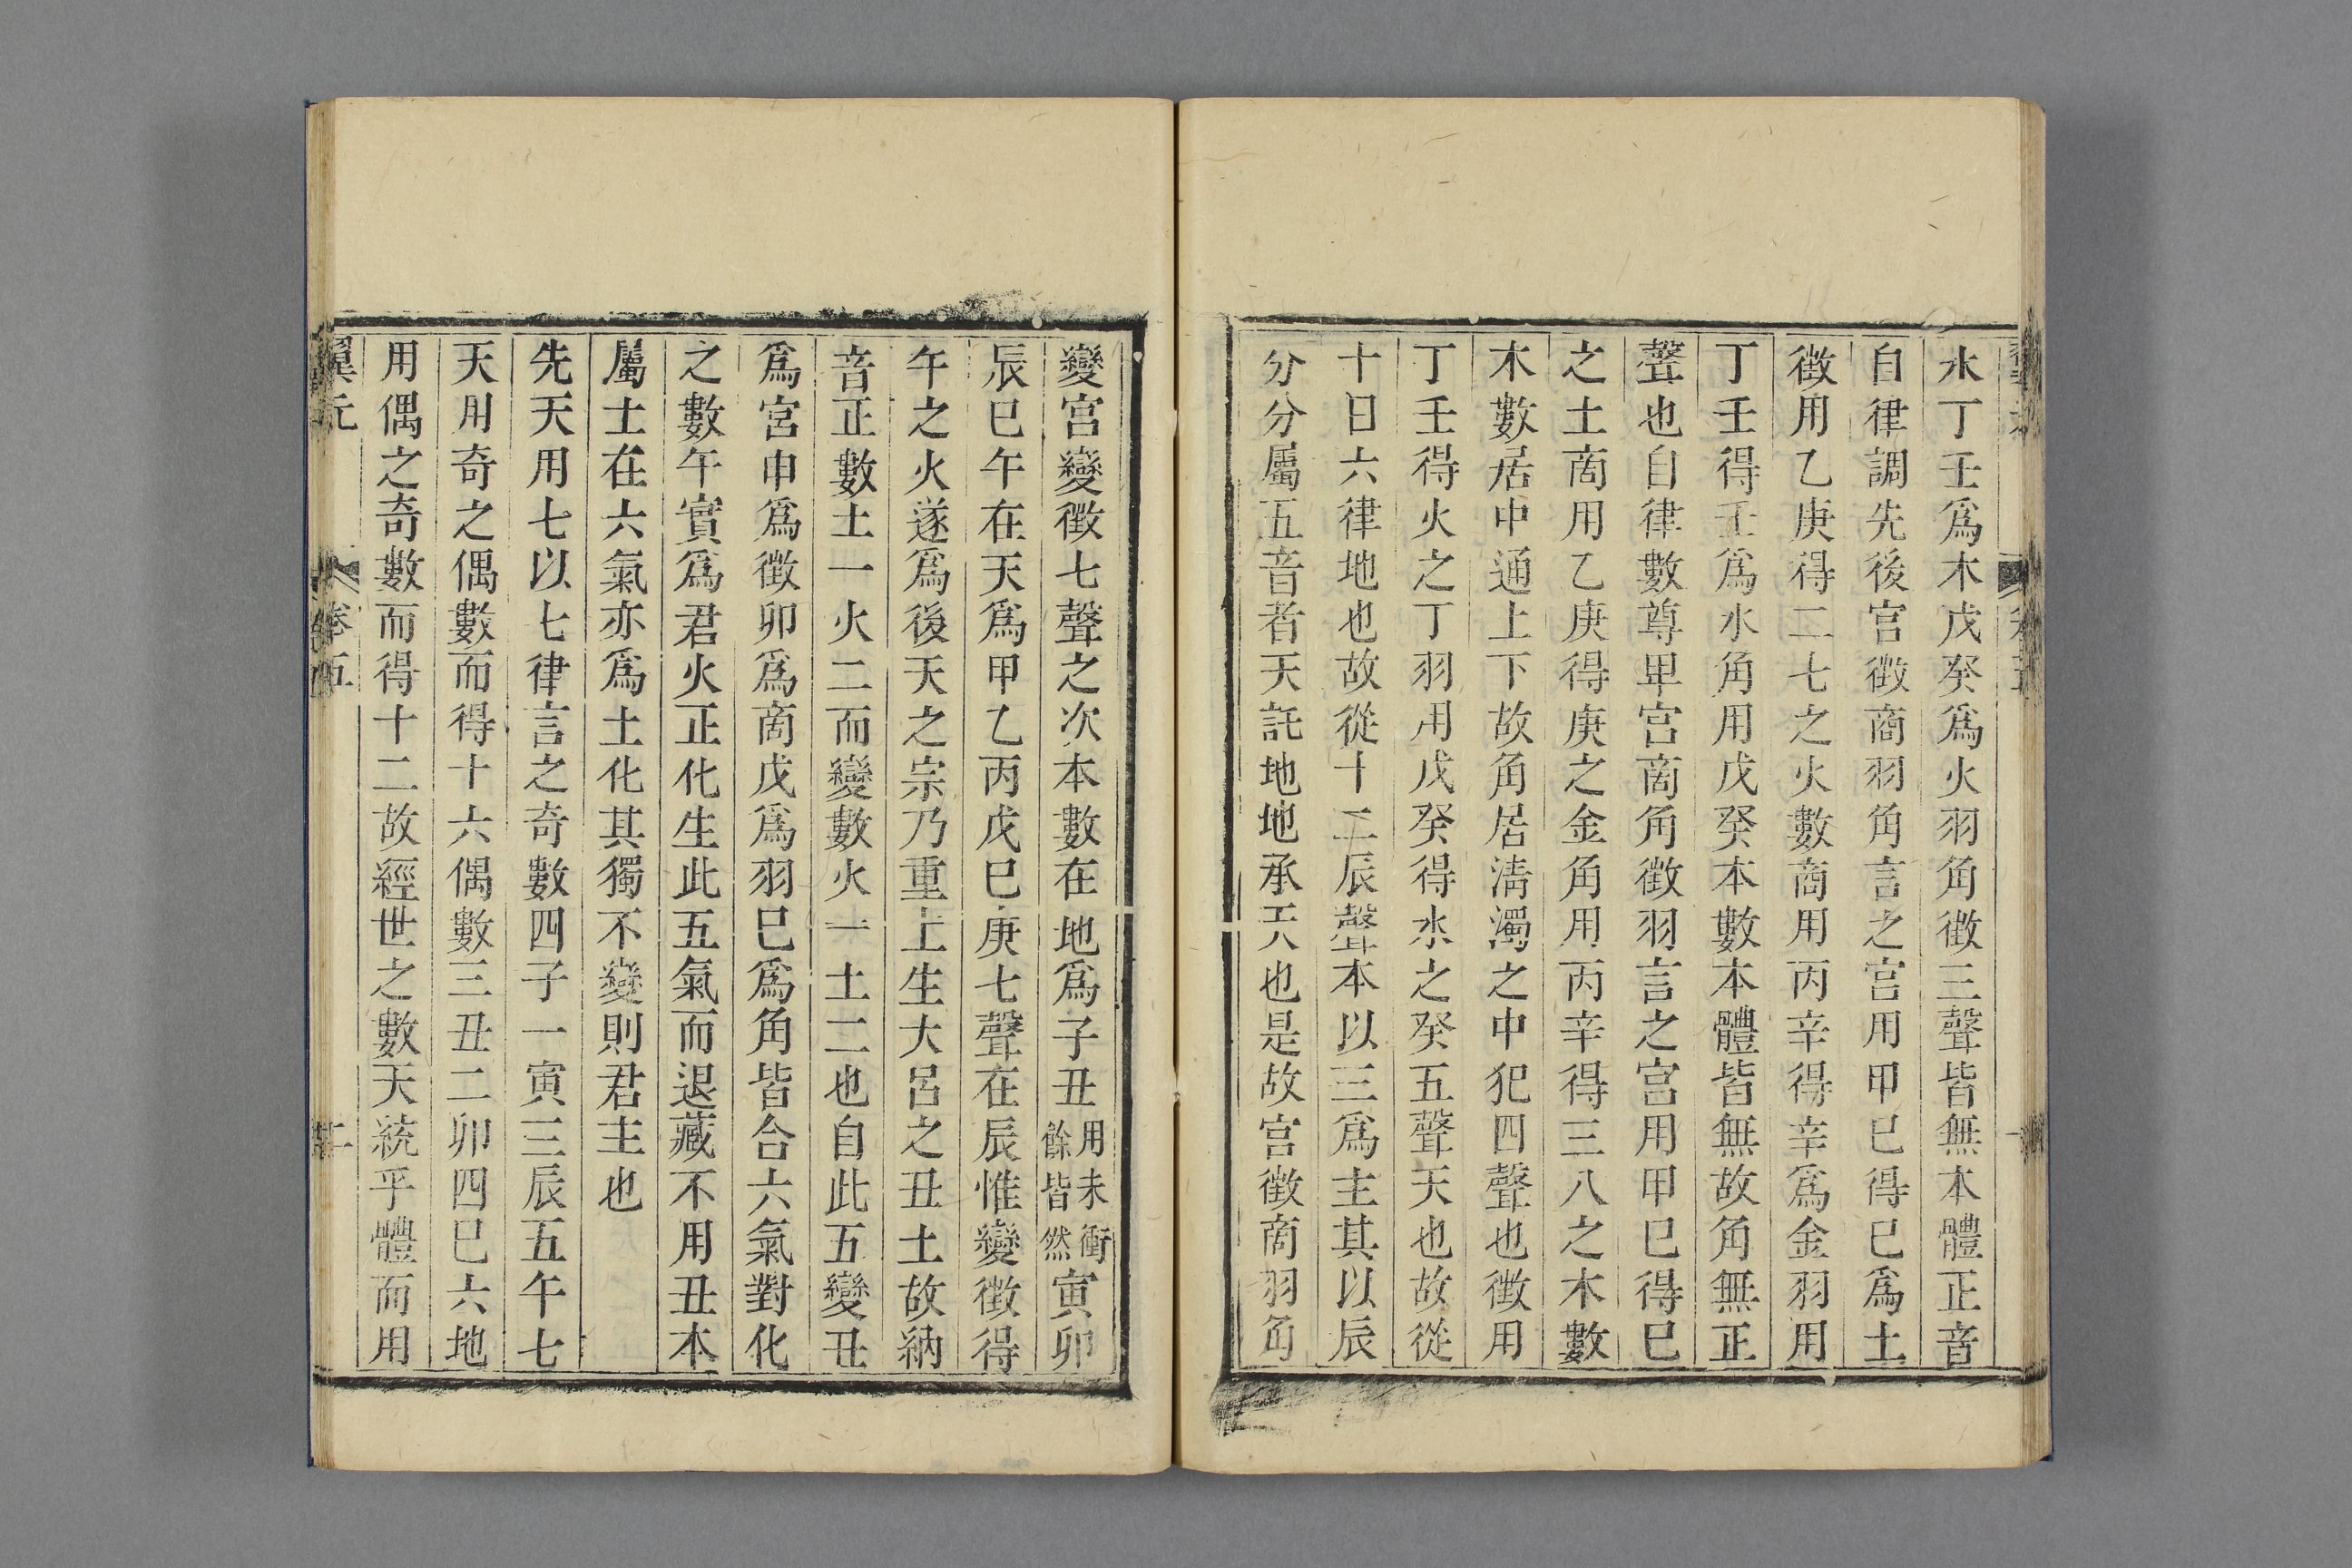 水丁壬爲木戊癸爲火羽角徵三聲皆無本體正音
自律調先後宮徵商羽角言之宮用甲巳得巳爲土
徵用乙庚得二七之火數商用丙辛得辛爲金羽用
丁壬得壬爲水角用戊癸本數本體皆無故角無正
聲也自律數尊卑宮商角徵羽言之宮用甲巳得巳
之土商用乙庚得庚之金角用丙辛得三八之木數
木數居中通上下故角居淸濁之中犯四聲也徵用
丁壬得火之丁羽用戊癸得水之癸五聲天也故從
十日六律地也故從十二辰聲本以三爲主其以辰
分分屬五音者天託地地承天也是故宮徵商羽角
變宮變徵七聲之次本數在地爲子丑用未衝餘皆然寅卯
辰巳午在天爲甲乙丙戊巳庚七聲在辰惟變徵得
午之火遂爲後天之宗乃重上生大呂之丑土故納
音正數土一火二而變數火一土二也自此五變丑
爲宮申爲徵卯爲商戊爲羽巳爲角皆合六氣對化
之數午實爲君火正化生此五氣而退藏不用丑本
屬土在六氣亦爲土化其獨不變則君主也
先天用七以七律言之奇數四子一寅三辰五午七
天用奇之偶數而得十六偶數三丑二卯四巳六地
用偶之奇數而得十二故經世之數天統乎體而用
翼元
卷五
二